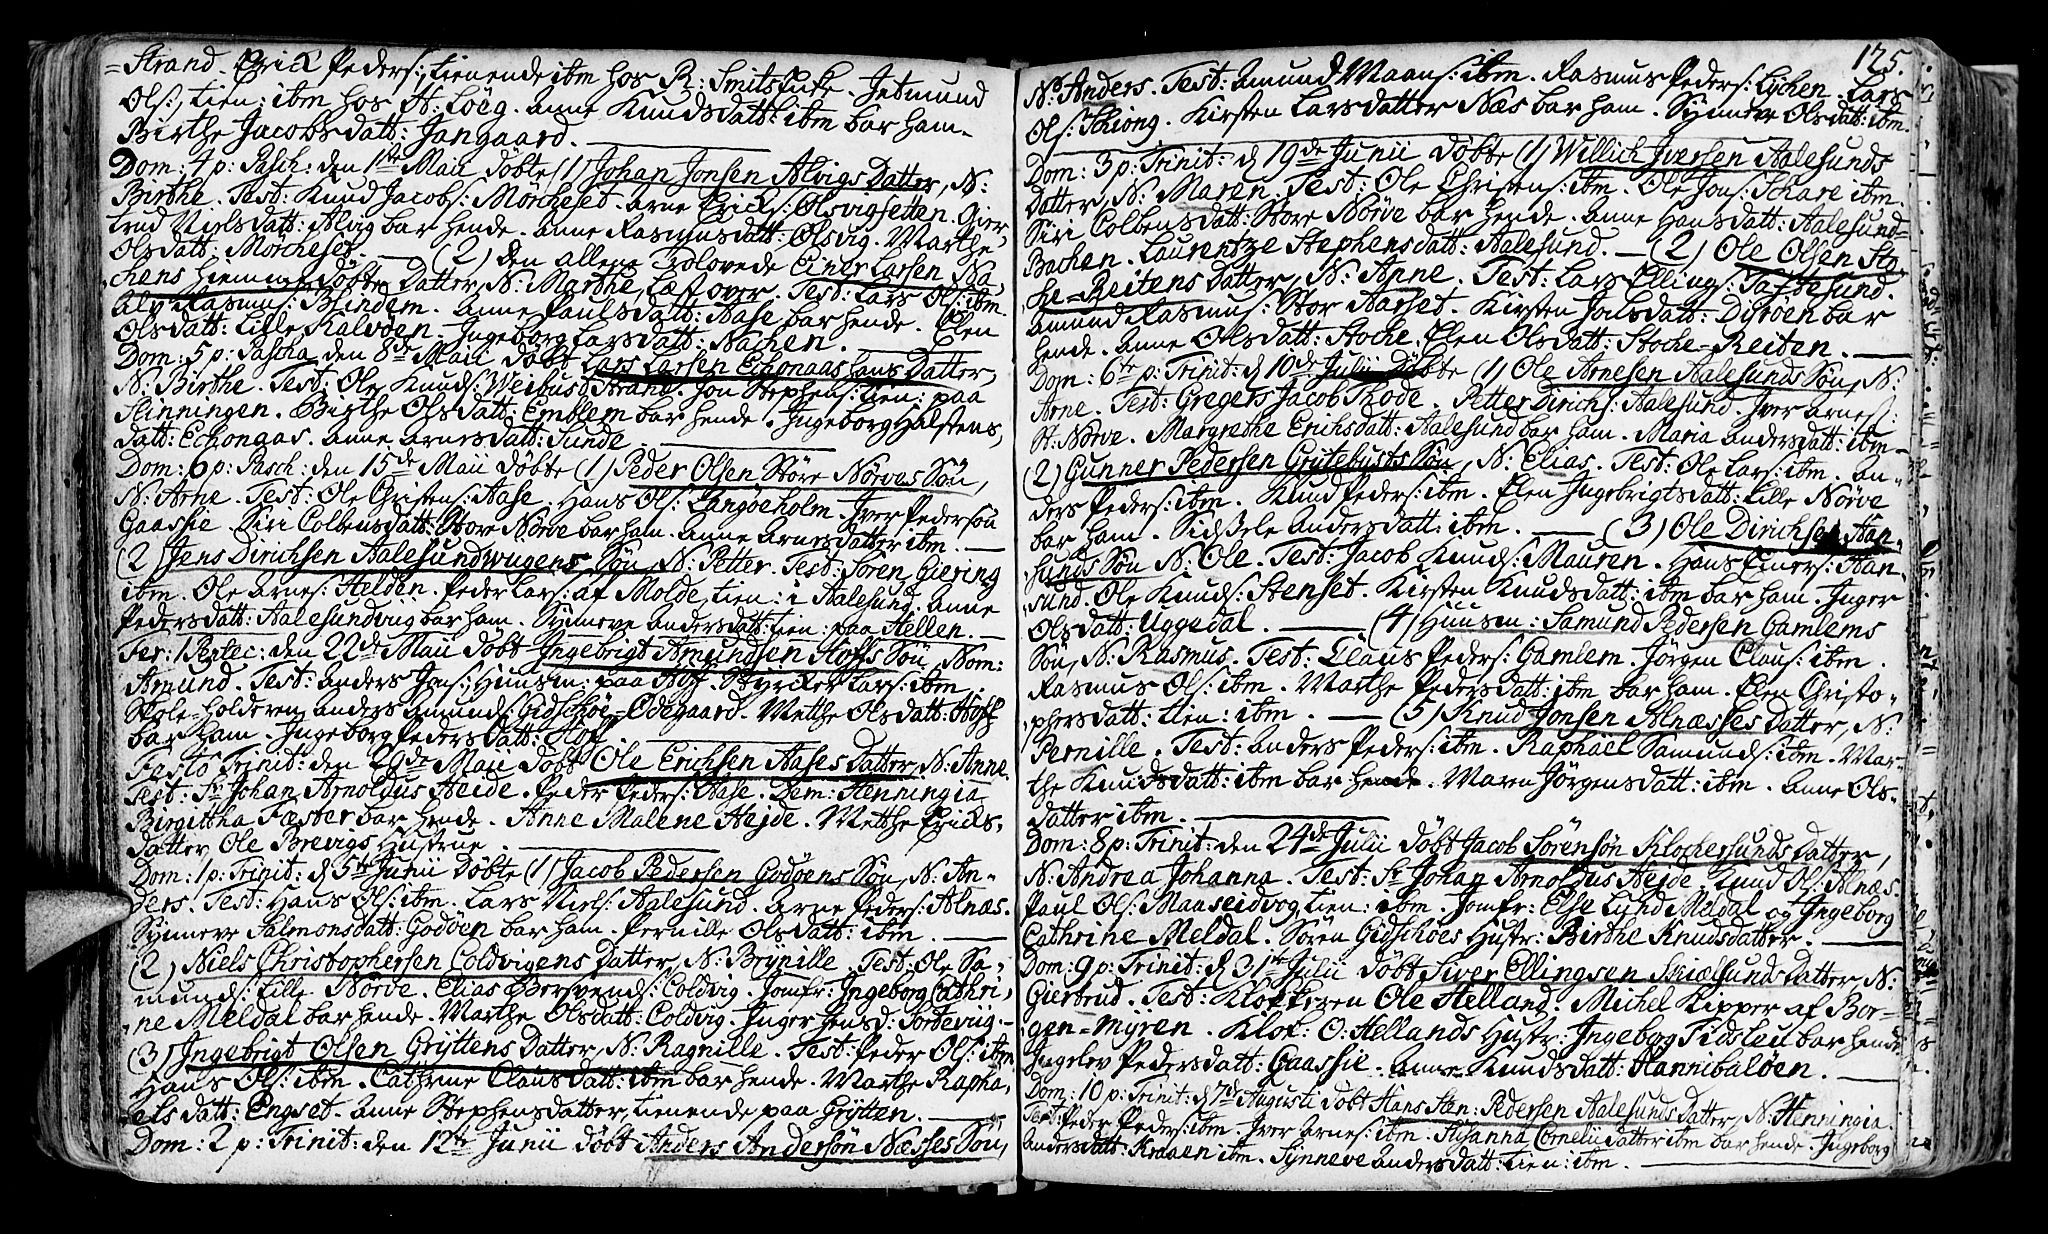 =Strand. Erick Peders: tienende ibm hos R: Smitstute. Jetmund
Ols: tien: ibm hos H: Löeg. Anne Knudsdatt: ibm bar ham.
Birthe Jacobsdatt: Jangaard.
Dom: 4 p: Pasch: den 1ste Maii döbte (1) Johan Jonsen Alvigs Datter, N:
Birthe. Test: Knud Jacobs: Mörcheset. Arne Ericks: Olsvigsetten. Gier
trud Nielsdatt: Alvig bar hende. Anne Rasmusdatt: Olsvig. Marthe
Olsdatt: Mörcheset. — (2) den allene Trolovede Einer Larsen Na,
chens hiemmedöbte Datter, N: Marthe, læst over. Test: Lars Ols: ibm
Alv Rasmus: Blindem. Anne Paulsdatt: Aase bar hende. Elen
Olsdatt: Lille Kalvöen. Ingeborg Larsdatt: Nachen.
Dom: 5 p: Pascha den 8de Maii döbt Lars Larsen Echonaashans Datter,
N: Birthe. Test: Ole Knuds: Weibust Strand. Jon Stephens: tien: paa
Slinningen. Birthe Olsdatt: Emblem bar hende. Ingeborg Halstens,
datt: Echongas. Anne Arnesdatt: Sunde.
Dom: 6 p: Pasch: den 15de Maii döbte (1) Peder Olsen Störe Nörves Sön,
N: Arne. Test: Ole Christens: Aase. Hans Ols: Langöeholm. Iver Pedersön
Gaassie. Siri Colbensdatt: Store Nörve bar ham. Anne Arnesdatter ibm.
(2) Jens Dirichsen Aalesundwugens Sön, N: Petter. Test: Sören Giering
ibm. Ole Arnes: Helden. Peder Lars: af Molde, tien: i Aalesund. Anne
Pedersdatt: Aalesundvig bar ham. Synneve Andersdatt: tien: paa Hellen.
Fer: 1 Pentec: den 22de Maii döbt Ingebrigt Amundsen Hoffs Sön, Nom:
Amund. Test: Anders Jons: Huusm: paa Hoff. Styrcker Lars: ibm.
Skole-Holderen Anders Amunds: Gidschöe-Ödegaard. Mette Olsdatt: Hoff
bar ham. Ingeborg Pedersdatt: Hoff.
Festo Trinit: den 29de Maii döbt Ole Erichsen Aases Datter, N: Anne.
Test: Sr Johan Arnoldus Heide. Peder Peders: Aase. Dem: Henningia
Birgittha Fæster bar hende. Anne Malene Hejde. Metthe Ericks,
datter Ole Brevigs Hustrue.
Dom: 1 p: Trinit: d 5te Junii döbte (1) Jacob Pedersen Godöens Sön, N: An-
ders. Test: Hans Ols: ibm. Lars Niels: Aalesund. Arne Peders: Alnæs.
Synneve Salmonsdatt: Godöen bar ham. Pernille Olsdatt: ibm.
(2) Niels Christophersen Coldvigens Datter, N: Brynille. Test: Ole Sa-
munds: Lille Nörve. Elias Bersvends: Coldvig. Jomfr: Ingeborg Cathri,
ne Meldal bar hende. Marthe Olsdatt: Coldvig. Inger Jensd: Sordeviig.
(3) Ingebrigt Olsen Gryttens Datter, N: Ragnille. Test: Peder Ols: ibm
Hans Ols: ibm. Cathrine Clausdatt: ibm bar hende. Marthe Rapha,
els datt: Engset. Anne Stephensdatter, tienende paa Grytten.
Dom: 2 p: Trinit: den 12te Junii döbt Anders Andersön Næsses Sön,
125.
N: Anders. Test: Amund Maans: ibm. Rasmus Peders: Lychen. Lars
Ols: Schiong. Kirsten Larsdatter Næs bar ham. Synnöv Olsdatt: ibm.
Dom: 3 p: Trinit: d 19de Junii döbte (1) Willich Iversen Aalesunds
Datter, N: Maren. Test: Ole Christens: ibm. Ole Jons: Schare ibm.
Siri Colbensdatt: Store Nörve bar hende. Anne Hansdatt: Aalesund=
Bachen. Laurentze Stephensdatt: Aalesund. — (2) Ole Olsen Sto
che-Reitens Datter, N: Anne. Test: Lars Ellings: Taftesund.
Amund Rasmus: Stor Aarset. Kirsten Jonsdatt: Diröen bar
hende. Anne Olsdatt: Stoche. Elen Olsdatt: Stoche-Reiten.
Dom: 6te p: Trinit: d 10de Julii döbte (1) Ole Arnesen Aalesunds Sön, N:
Arne. Test: Gregers Jacob Skode. Petter Dirichs: Aalesund. Iver Arnes:
St: Nörve. Margrethe Erichsdatt: Aalesund bar ham. Maria Andersdatt: ibm
(2) Gunner Pedersen Grytebusts Sön, N: Elias. Test: Ole Lars: ibm. An-
ders Peders: ibm. Knud Peders: ibm. Elen Ingebrigtsdatt: Lille Nörve
bar ham. Sidssele Andersdatt: ibm. — (3) Ole Dirichsen Aan-
sunds Sön N: Ole. Test: Jacob Knuds: Mauren. Hans Einers: Aan-
sund. Ole Knuds: Stenset. Kirsten Knudsdatt: ibm bar ham. Inger
Olsdatt: Uggedal. — (4) Huusm: Samund Pedersen Gamlems
Sön, N: Rasmus. Test: Claus Peders: Gamlem. Jörgen Claus: ibm.
Rasmus Ols: ibm. Marthe Pedersdatt: ibm bar ham. Elen Christo-
phersdatt: tien: ibm. — (5) Knud Jonsen Alnæsses Datter, N:
Pernille. Test: Anders Peders: ibm. Raphael Samunds: ibm. Mar-
the Knudsdatt: ibm bar hende. Maren Jörgensdatt: ibm. Anne Ols-
datter ibm.
Dom: 8 p: Trinit: den 24de Julii döbt Jacob Sörensön Klochersunds Datter,
N: Andrea Johanna. Test: Sr Johan Arnoldus Hejde. Knud Ols: Alnæs.
Paul Ols: Maaseidvog, tien: ibm. Jomfr: Else Lund Meldal og Ingeborg
Cathrine Meldal. Sören Gidschöes Hustr: Birthe Knudsdatter.
Dom: 9 p: Trinit: d 31te Julii döbt Siver Ellingsen Schiælsunds Datter, N:
Giertrud. Test: Klokkeren Ole Helland. Michel Kipper af Bor-
gen-Myren. Klok: O: Hellands Hustr: Ingebog Tidsleu bar hende
Ingelev Pedersdatt: Gaassie. Anne Knudsdatt: Hannibalöen.
Dom: 10 p: Trinit: d 7de Augusti döbt Hans Hen: Pedersen Aalesunds Datter, N: Henningia.
Test: Peder Peders: ibm. Iver Arnes: ibm. Susanna Cornelii Datter ibm bar hende. Ingeborg
Andersdatt: Kraaen ibm. Synneve Andersdatt: tien: ibm.